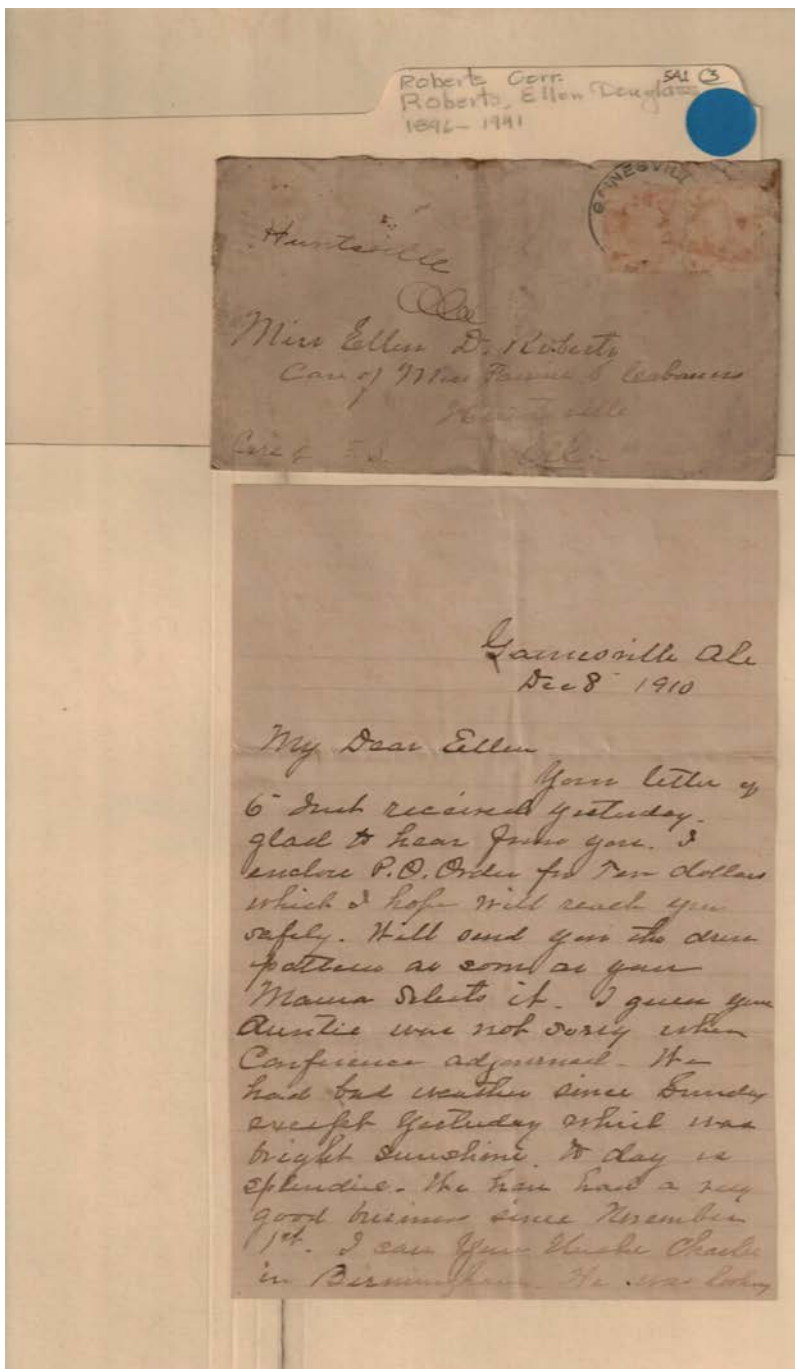 Roberts Corr. 5A1 C3
Roberts, Ellen Douglass
1896-1941
GAINESVILL
Huntsville
Ala
Miss Ellen D. Roberts
Care of Miss
Huntsville
Care of Ala
Gainesville Ala
Dec 8 1910
My Dear Ellen
Your letter of
6 Inst received yesterday.
glad to hear from you. I
enclose P.O. Order for Ten dollars
which I hope will reach you
safely. Will send you the dress
pattern as soon as your
Mama selects it. I guess your
Auntie was not sorry when
Conference adjourned. We
had bad weather since Sunday
except yesterday which was
bright sunshine. To day is
splendid. We have had a very
good business since November
1st. I saw your Uncle Charlie
in Birmingham. He was looking